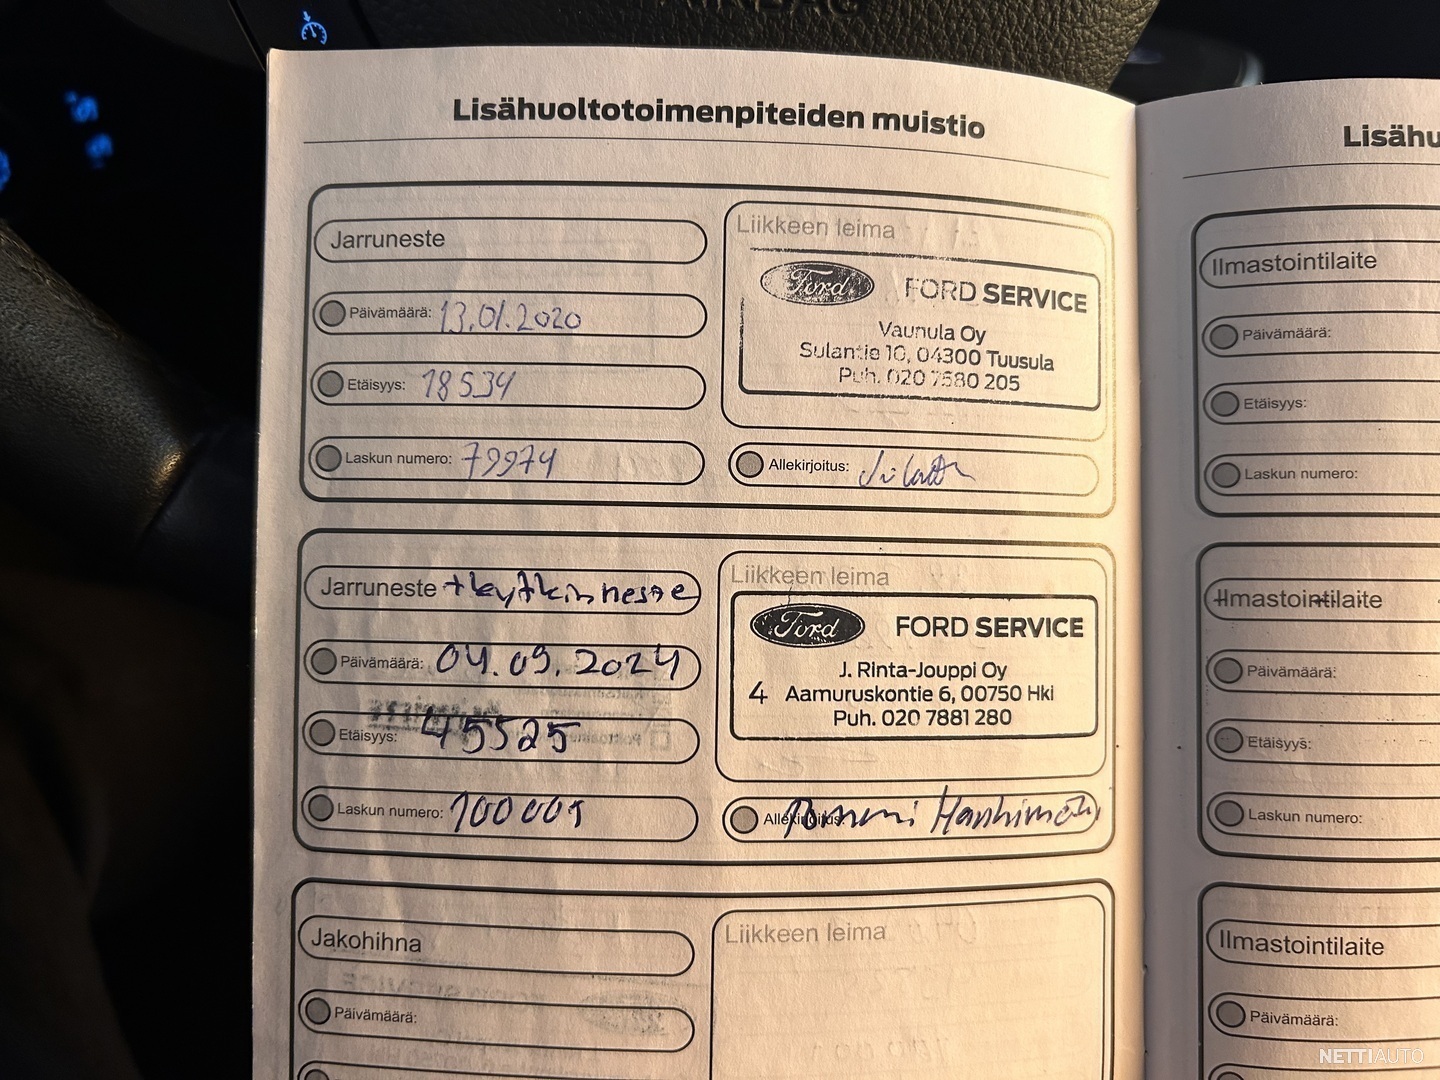 AIRBAG
Lisähuoltotoimenpiteiden muistio
Jarruneste
Päivämäärä: 13.01.2020
Etäisyys: 18534
Laskun numero: 79974
Liikkeen leima
Ford FORD SERVICE
Vaunula Oy
Sulantie 10, 04300 Tuusula
Puh. 020 7580 205
Allekirjoitus:
Jarruneste + kytkinneste
Päivämäärä: 04.09.2024
Etäisyys: 45525
Laskun numero: 100001
Liikkeen leima
Ford FORD SERVICE
J. Rinta-Jouppi Oy
4 Aamuruskontie 6, 00750 Hki
Puh. 020 7881 280
Allekirjoitus:
Jakohihna
Päivämäärä:
Liikkeen leima
Lisähu
Ilmastointilaite
Päivämäärä:
Etäisyys:
Laskun numero:
Ilmastointilaite
Päivämäärä:
Etäisyys:
Laskun numero:
Ilmastointilaite
Päivämäärä:
NETTIAUTO